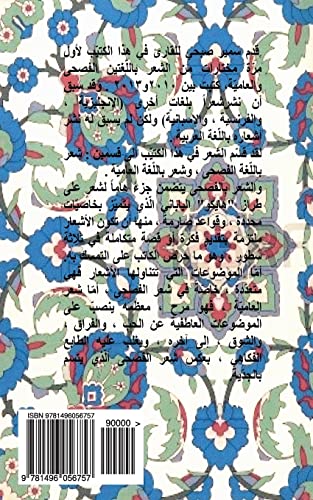 قدم سمير صبحي للقارئ في هذا الكتيب لأول
مرة مختارات من الشعر باللغتين الفصحى
والعامية، كتبت بين ٢٠٠١ و٢٠١٣. وقد سبق
أن نشر شعر بلغات أخرى (الإنجليزية ،
والفرنسية ، والإسبانية) ولكن لم يسبق له نشر
أشعاره باللغة العربية.
لقد قسم الشعر في هذا الكتيب إلى قسمين : شعر
باللغة الفصحى ، وشعر باللغة العامية .
والشعر بالفصحى يتضمن جزءً هاماً لشعر على
طراز "هايكو" الياباني الذي يتميز بخاصيات
محددة ، وقواعد صارمة ، منها أن تكون الأشعار
ملتزمة بتقديم فكرة أو قصة متكاملة في ثلاثة
سطور ، وهو ما حرص الكاتب على التمسك به.
أما الموضوعات التي تتناولها الأشعار فهي
متعددة ، خاصة في شعر الفصحى ، أما شعر
العامية ، فهو مرح ، معظمه ينصب على
الموضوعات العاطفية عن الحب ، والفراق ،
والشوق ، إلى آخره ، ويغلب عليه الطابع
الفكاهي ، بعكس شعر الفصحى الذي يتسم
بالجدية.
ISBN 9781496056757
90000 >
9 781496 056757